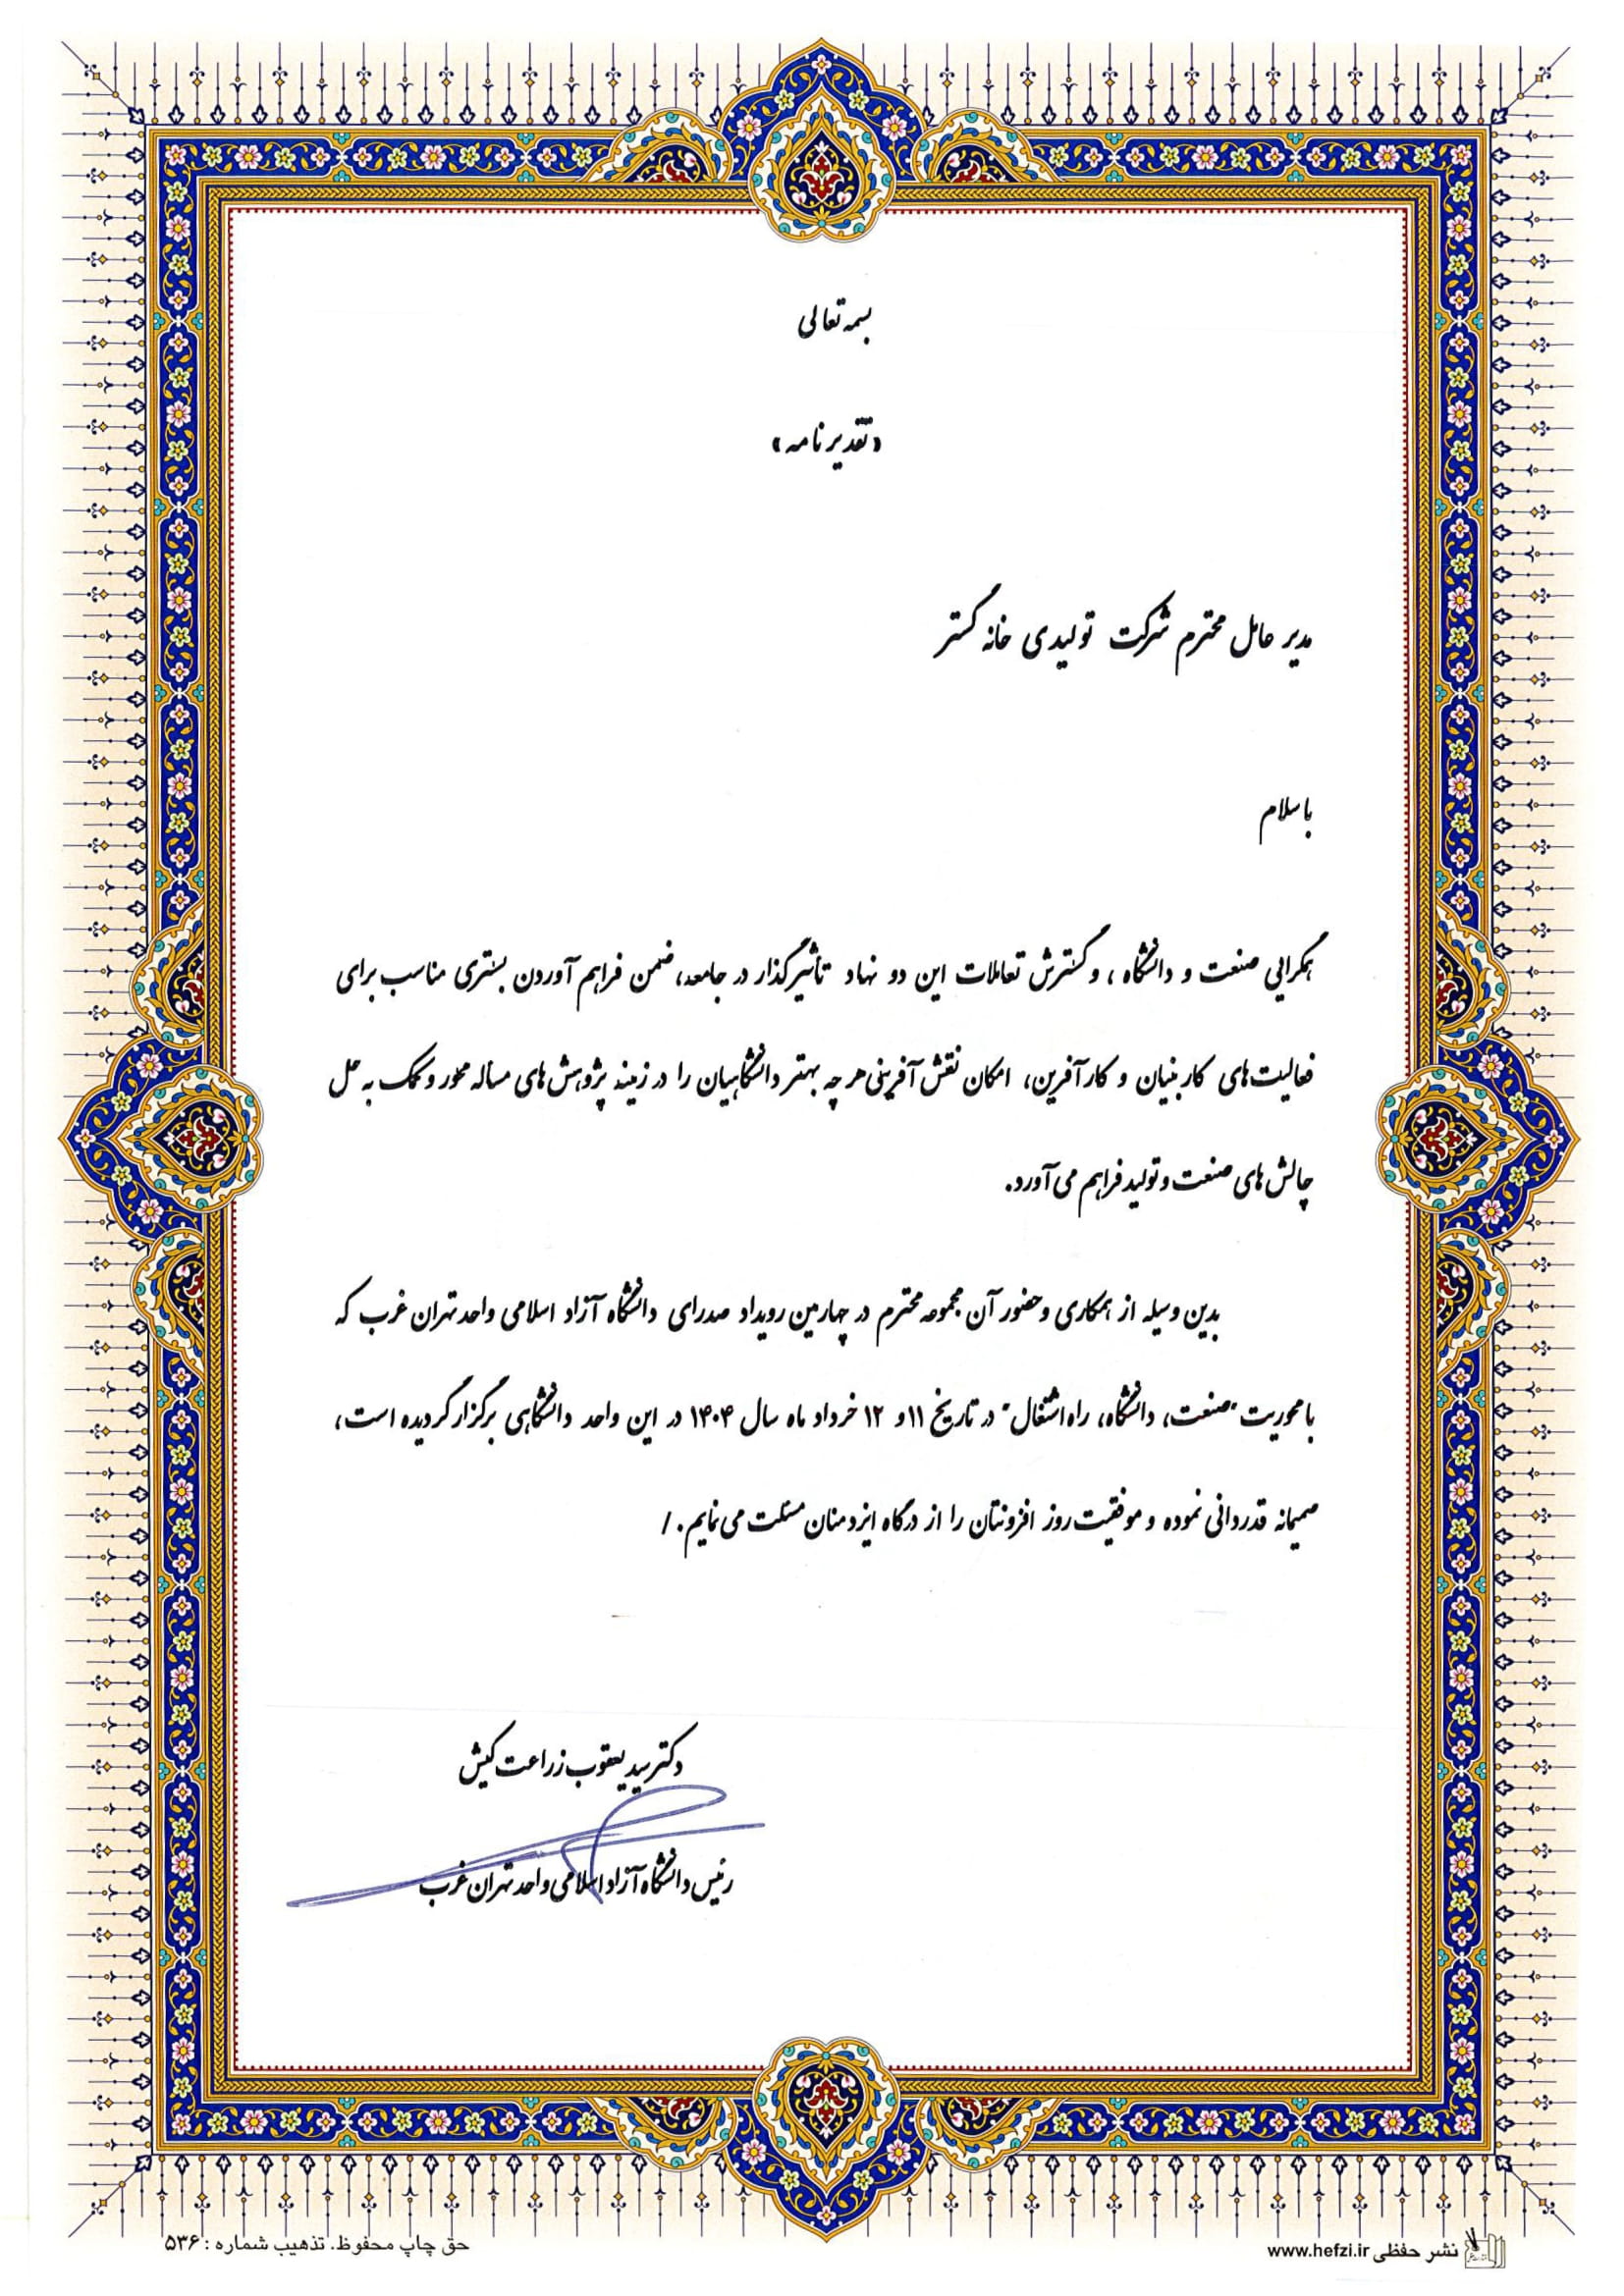 بسمه تعالی
«تقدیرنامه»
مدیر عامل محترم شرکت تولیدی خانه گستر
باسلام
همگرایی صنعت و دانشگاه، و گسترش تعاملات این دو نهاد تأثیرگذار در جامعه، ضمن فراهم آوردن بستری مناسب برای
فعالیت‌های کاربنیان و کارآفرین، امکان نقش آفرینی هر چه بهتر دانشگاهیان را در زمینه پژوهش‌های مساله محور و کمک به حل
چالش‌های صنعت و تولید فراهم می‌آورد.
بدین وسیله از همکاری و حضور آن مجموعه محترم در چهارمین رویداد صدرای دانشگاه آزاد اسلامی واحد تهران غرب که
با محوریت "صنعت، دانشگاه، راه اشتغال" در تاریخ ۱۱ و ۱۲ خرداد ماه سال ۱۴۰۴ در این واحد دانشگاهی برگزار گردیده است،
صمیمانه قدردانی نموده و موفقیت روز افزونتان را از درگاه ایزد منان مسئلت می‌نمایم. /
دکتر سید یعقوب زراعت کیش
رئیس دانشگاه آزاد اسلامی واحد تهران غرب
حق چاپ محفوظ. تذهیب شماره : ۵۳۶
نشر حفظی www.hefzi.ir